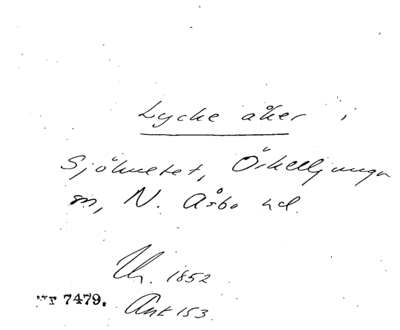 Lycke åker i
Sjöhultet, Örkelljunga
sn, N. Åsbo hd.
Uh. 1852
nr 7479. Ank 153